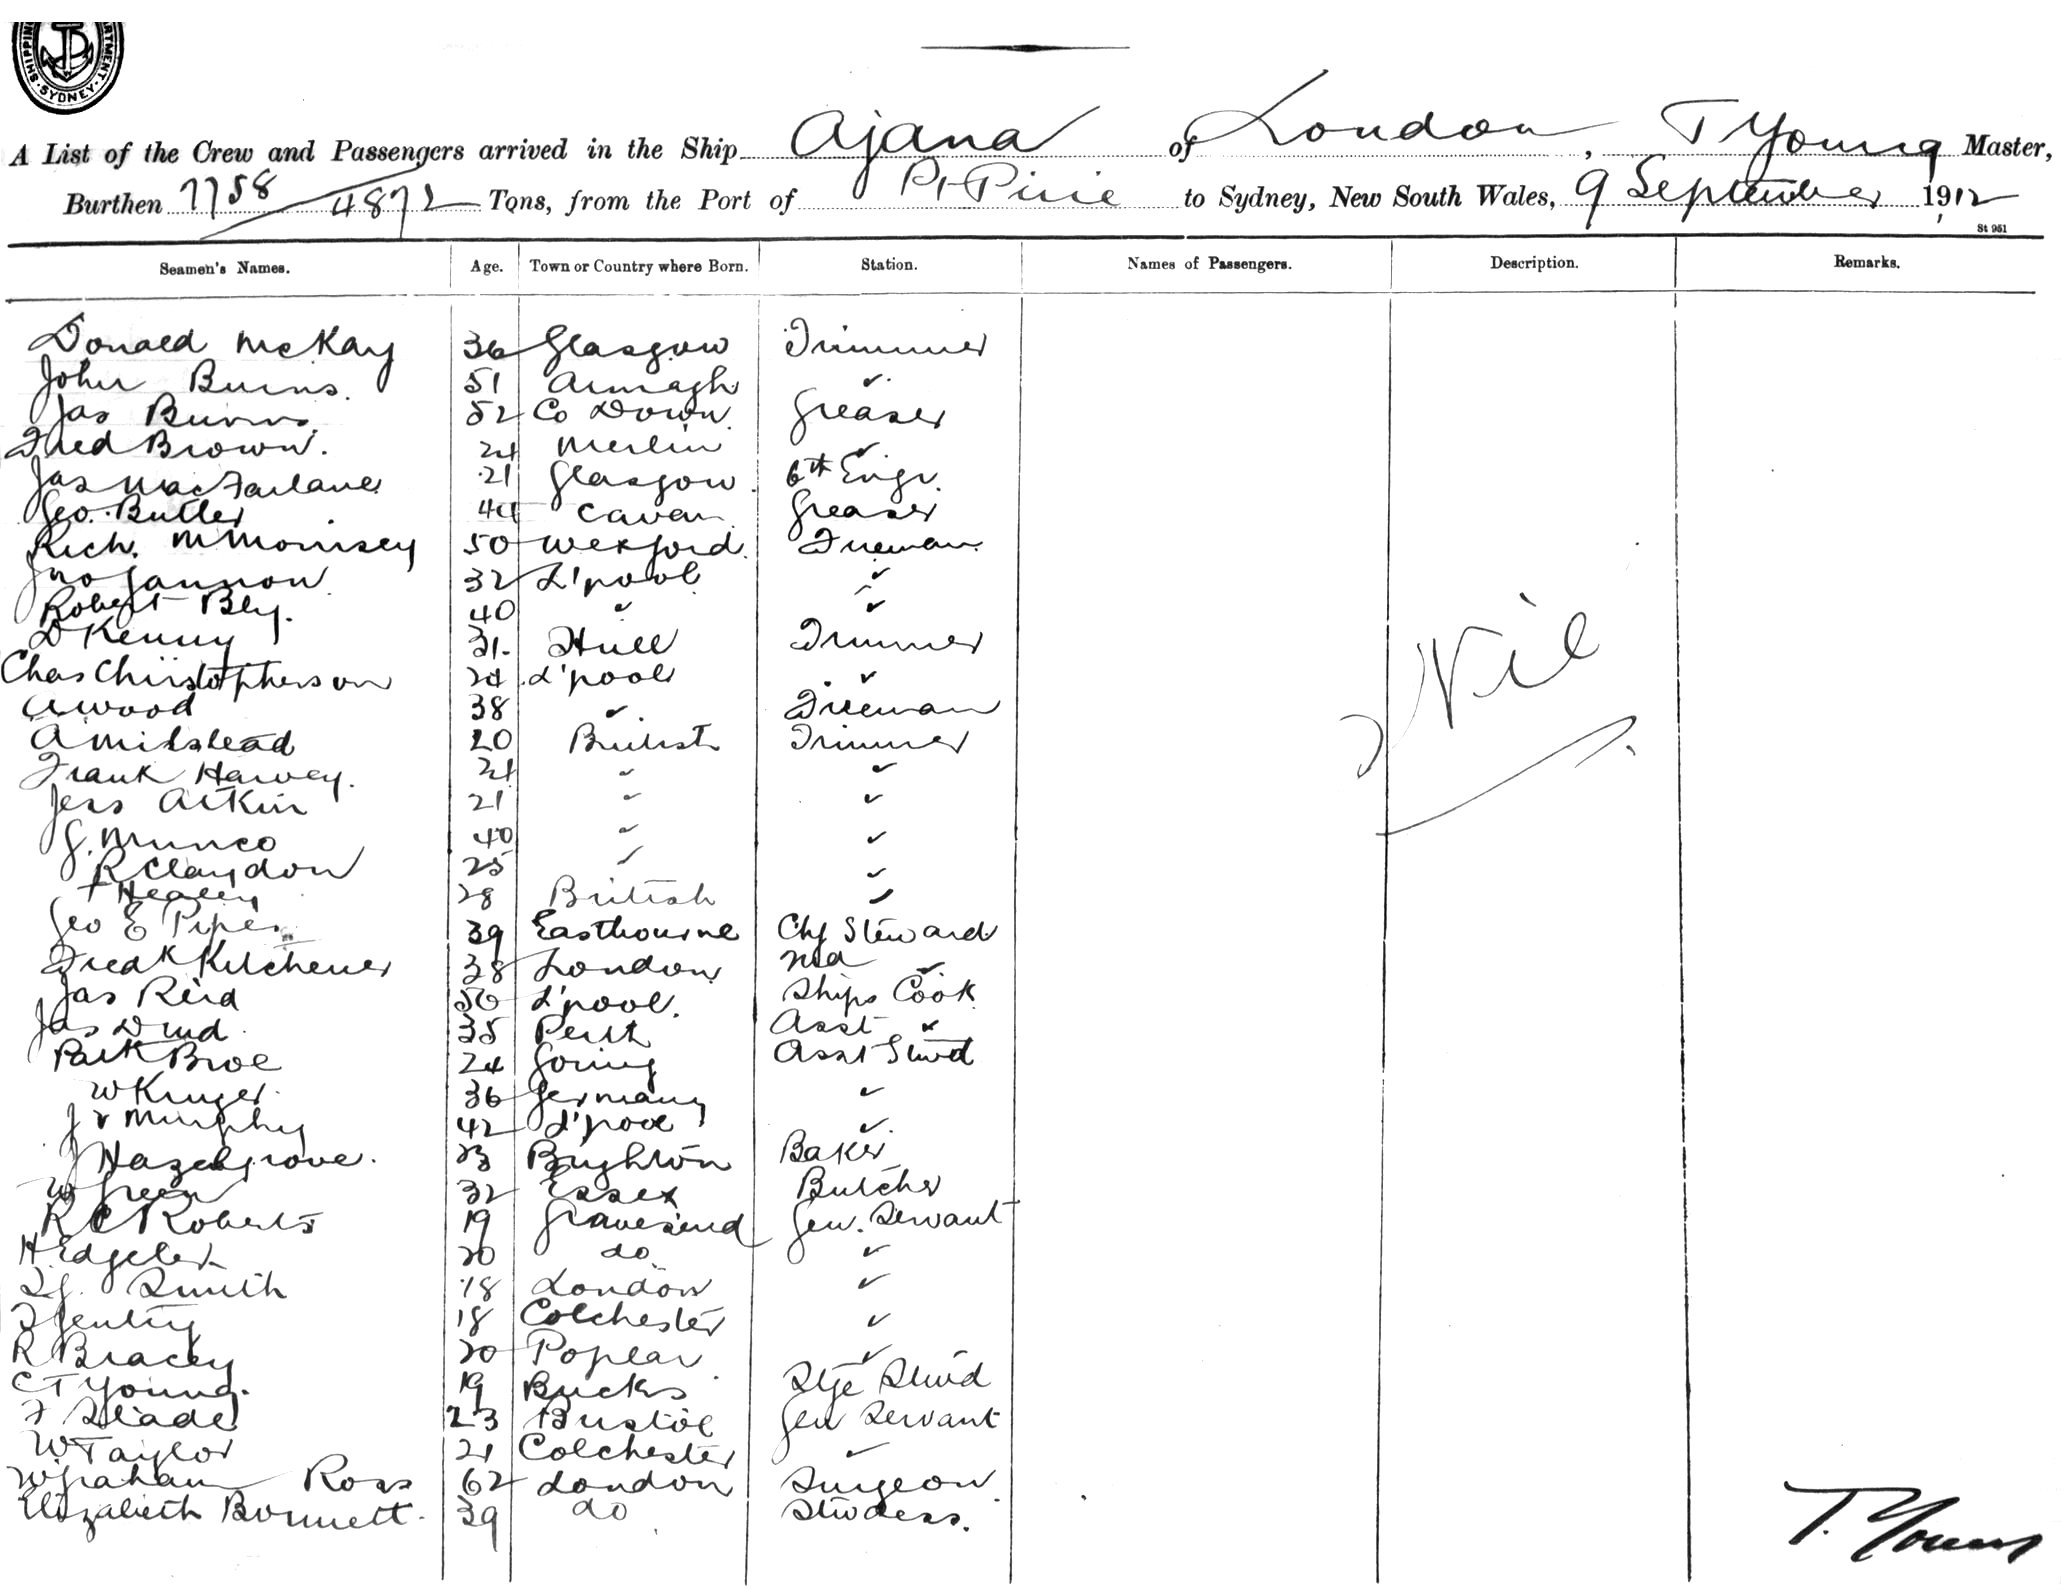 SHIPPING DEPARTMENT SYDNEY
A List of the Crew and Passengers arrived in the Ship Ajana of London, T Young Master,
Burthen 7758/4872 Tons, from the Port of Pt Pirie to Sydney, New South Wales, 9 September 1912
St 951
Seamen's Names. Age. Town or Country where Born. Station. Names of Passengers. Description. Remarks.
Donald McKay 36 Glasgow Trimmer
John Burns. 51 Armagh "
Jas Burns. 52 Co Down. Greaser
Fred Brown. 24 Merlin "
Jas MacFarlane 21 Glasgow. 6th Engr.
Geo. Butler 44 Cavan Greaser
Rich. McMorrisey 50 Wexford. Fireman
Jno Gannon 32 L'pool "
Robert Bly. 40 " "
D Kenny 31. Hull Trimmer
Chas Christopherson 24 L'pool "
A Wood 38 " Fireman
A Milstead 20 British Trimmer
Frank Harvey. 24 " "
Jess Aitkin 21 " "
G. Munro 40 " "
R Claydon 25 " "
T Healey 28 British "
Geo E Piper 39 Eastbourne Chf Steward
Fredk Kitchener 38 London 2nd "
Jas Reid 56 L'pool. Ships Cook
Jas 35 Perth Asst "
Patk Broe 24 Goring Asst Stwd
W Kruger. 36 Germany "
J Murphy 42 L'pool "
J Hazelgrove. 23 Brighton Baker
W Green 32 Essex Butcher
R C Roberts 19 Gravesend Gen. Servant
H Edgeler 20 do "
Smith 18 London "
Gentry 18 Colchester "
R Bracey 20 Poplar "
C T Young. 19 Bucks Stge Stwd
F Slade 23 Bristol Gen Servant
W Taylor 21 Colchester "
W Graham Ross 62 London Surgeon.
Elizabeth Bonnett. 39 do Stwdess.
Nil
T. Young